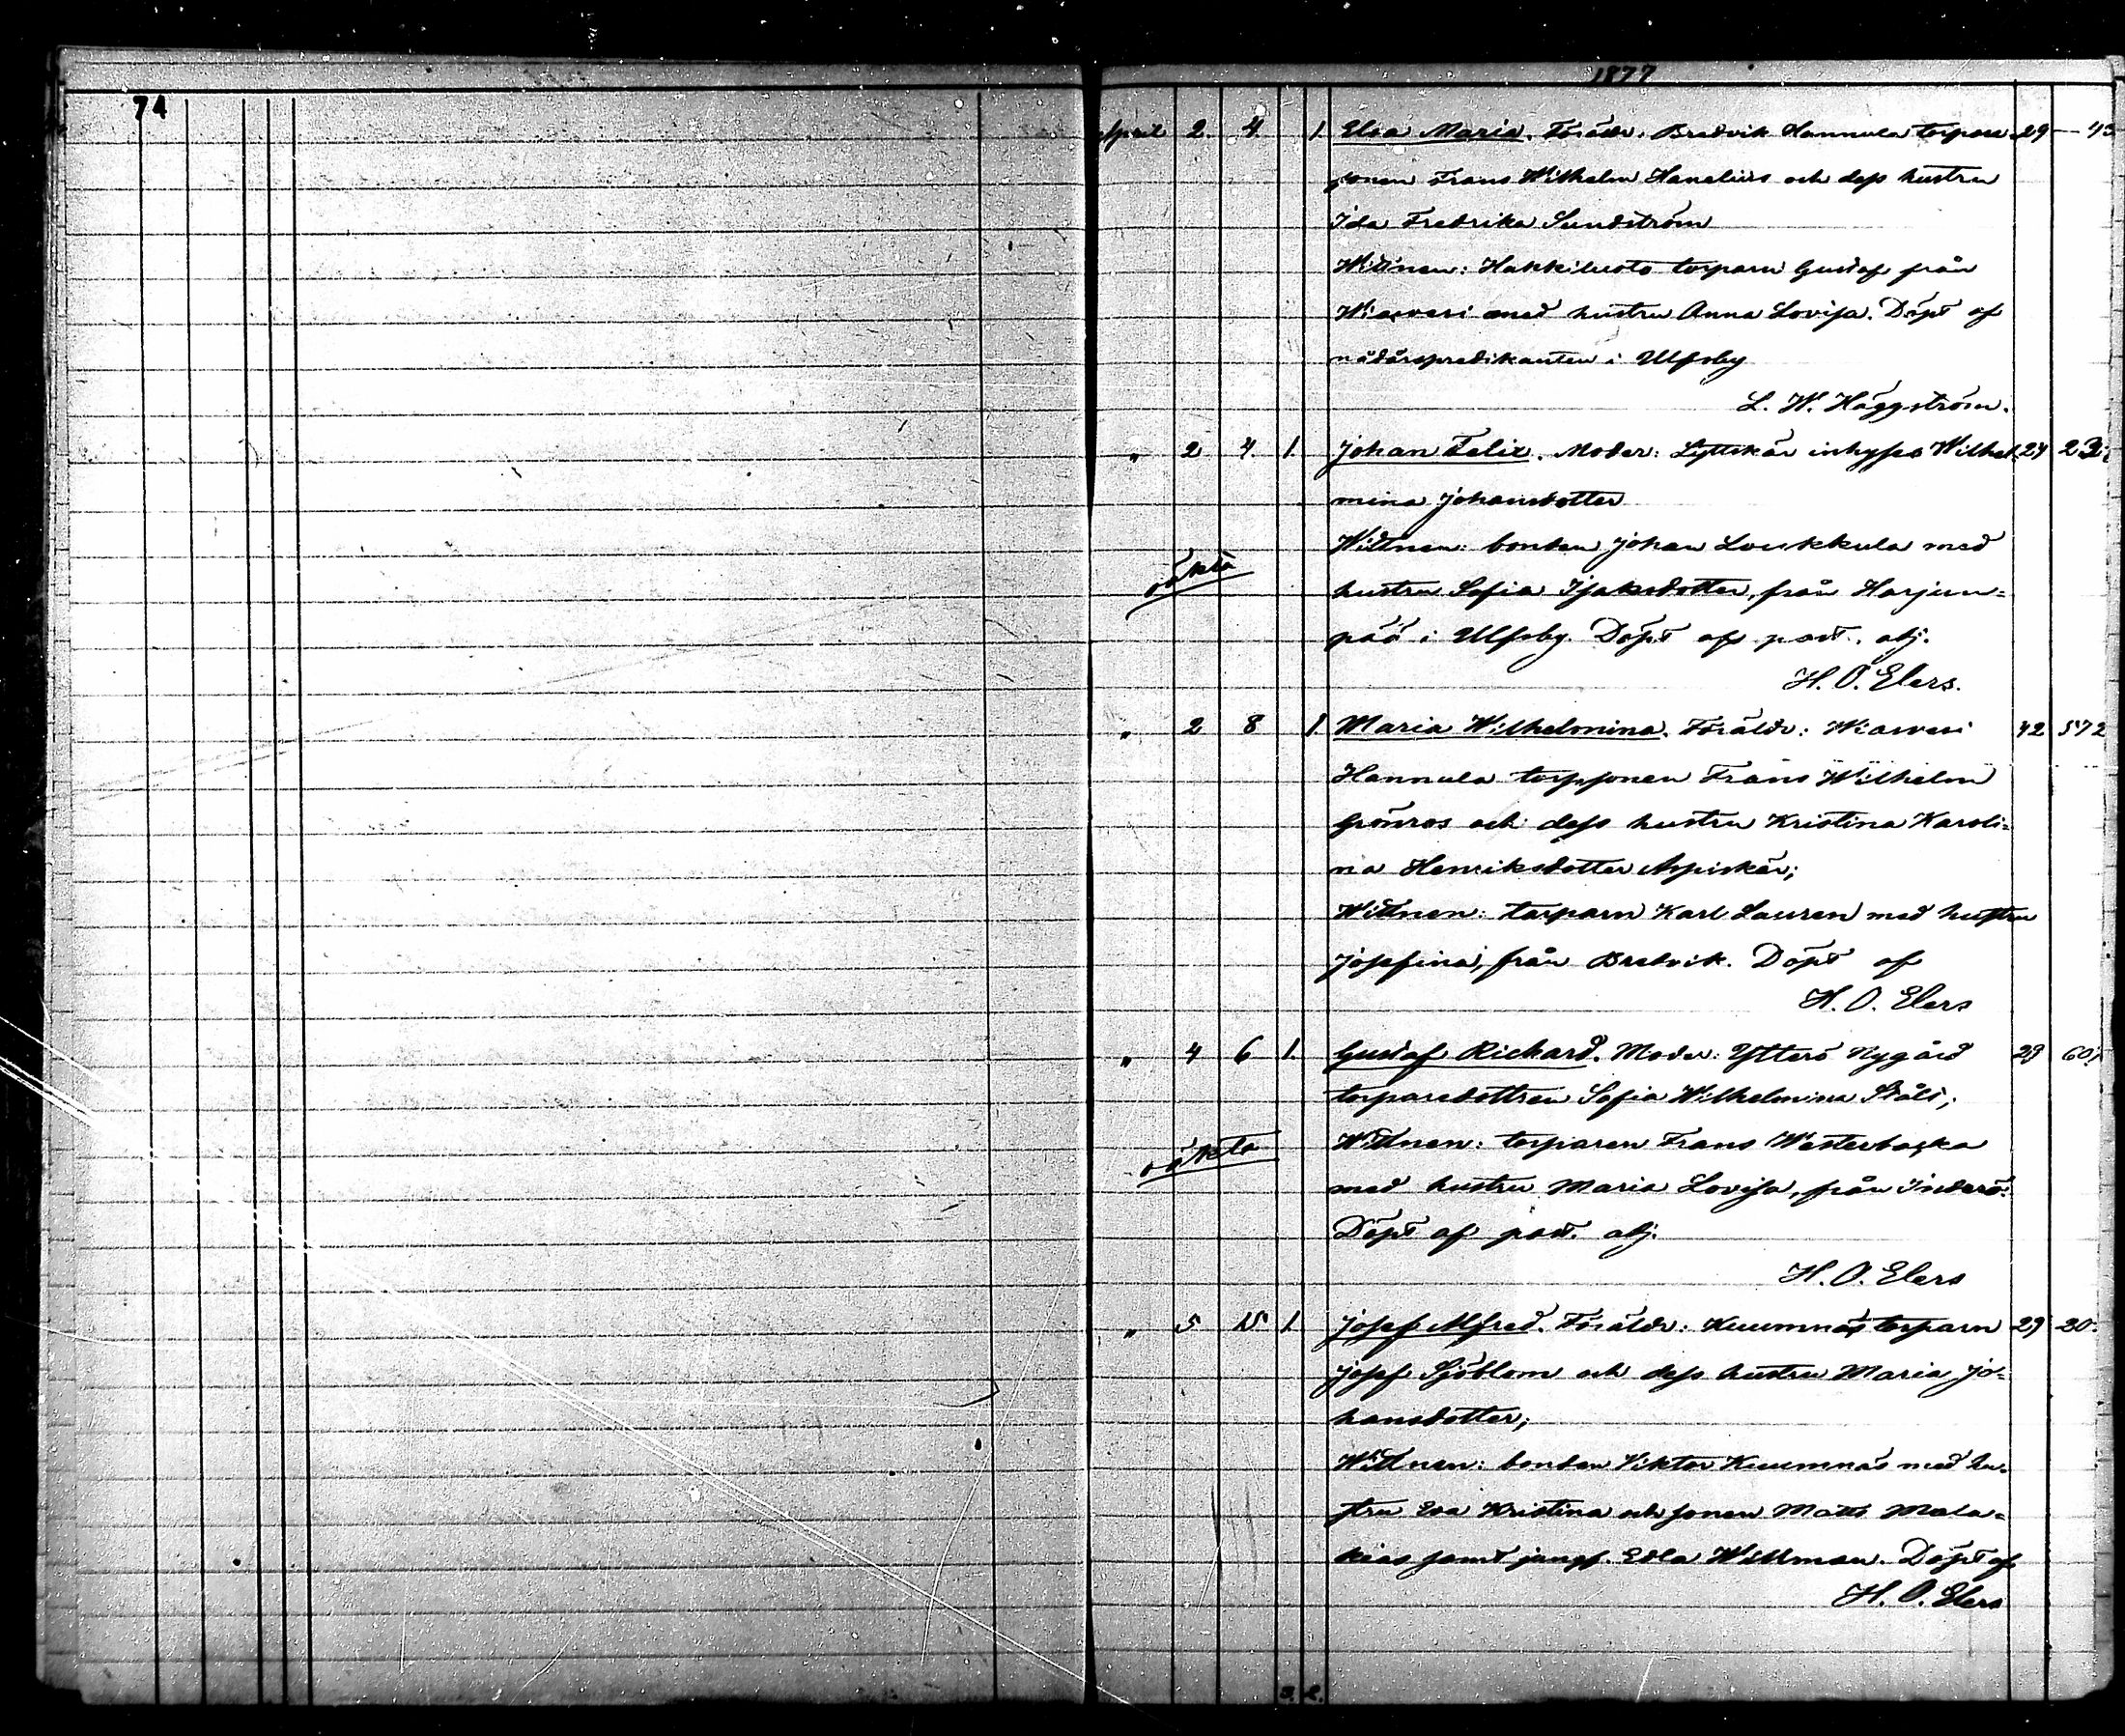 1877
74
April 2. 4. 1. Elsa Maria. Föräldr. Bredvik Hannula torpare- 29 — 43
sonen Frans Wilhelm Hanelius och dess hustru
Ida Fredrika Sundström
Wittnen: Hakkiluoto torparn Gustaf från
Wiasvesi med hustru Anna Lovisa. Döpt af
nådårspredikanten i Ulfsby
L. W. Häggström.
" 2 4. 1. Johan Felix. Moder: Lyttskär inhyses Wilhel- 24 23
mina Johansdotter
Wittnen: bonden Johan Loukkula med
oäkta hustru Sofia Isaksdotter, från Harjun=
pää i Ulfsby. Döpt af past. adj.
H. O. Elers.
" 2 8 1 Maria Wilhelmina. Föräldr: Wiasvesi 42 572
Hannula torpsonen Frans Wilhelm
Grönros och dess hustru Kristina Karoli=
na Henriksdotter Aspiskär;
Wittnen: torparn Karl Lauren med hustru
Josefina, från Bredvik. Döpt af
H. O. Elers
" 4 6 1. Gustaf Richard. Moder: Ytterö Nygård 29 60
torparedottren Sofia Wilhelmina Ståls;
oäkta Wittnen: torparen Frans Westerbacka
med hustru Maria Lovisa, från Inderö.
Döpt af past. adj.
H. O. Elers
" 5 15 1. Josef Alfred. Föräldr: Kuumnäs torparn 29 20.
Josef Sjöblom och dess hustru Maria Jo=
hansdotter;
Wittnen: bonden Viktor Kuumnäs med hu-
stru Eva Kristina och sonen Matts Mala=
kias samt jungf. Edla Willman. Döpt af
H. O. Elers
3. 2.